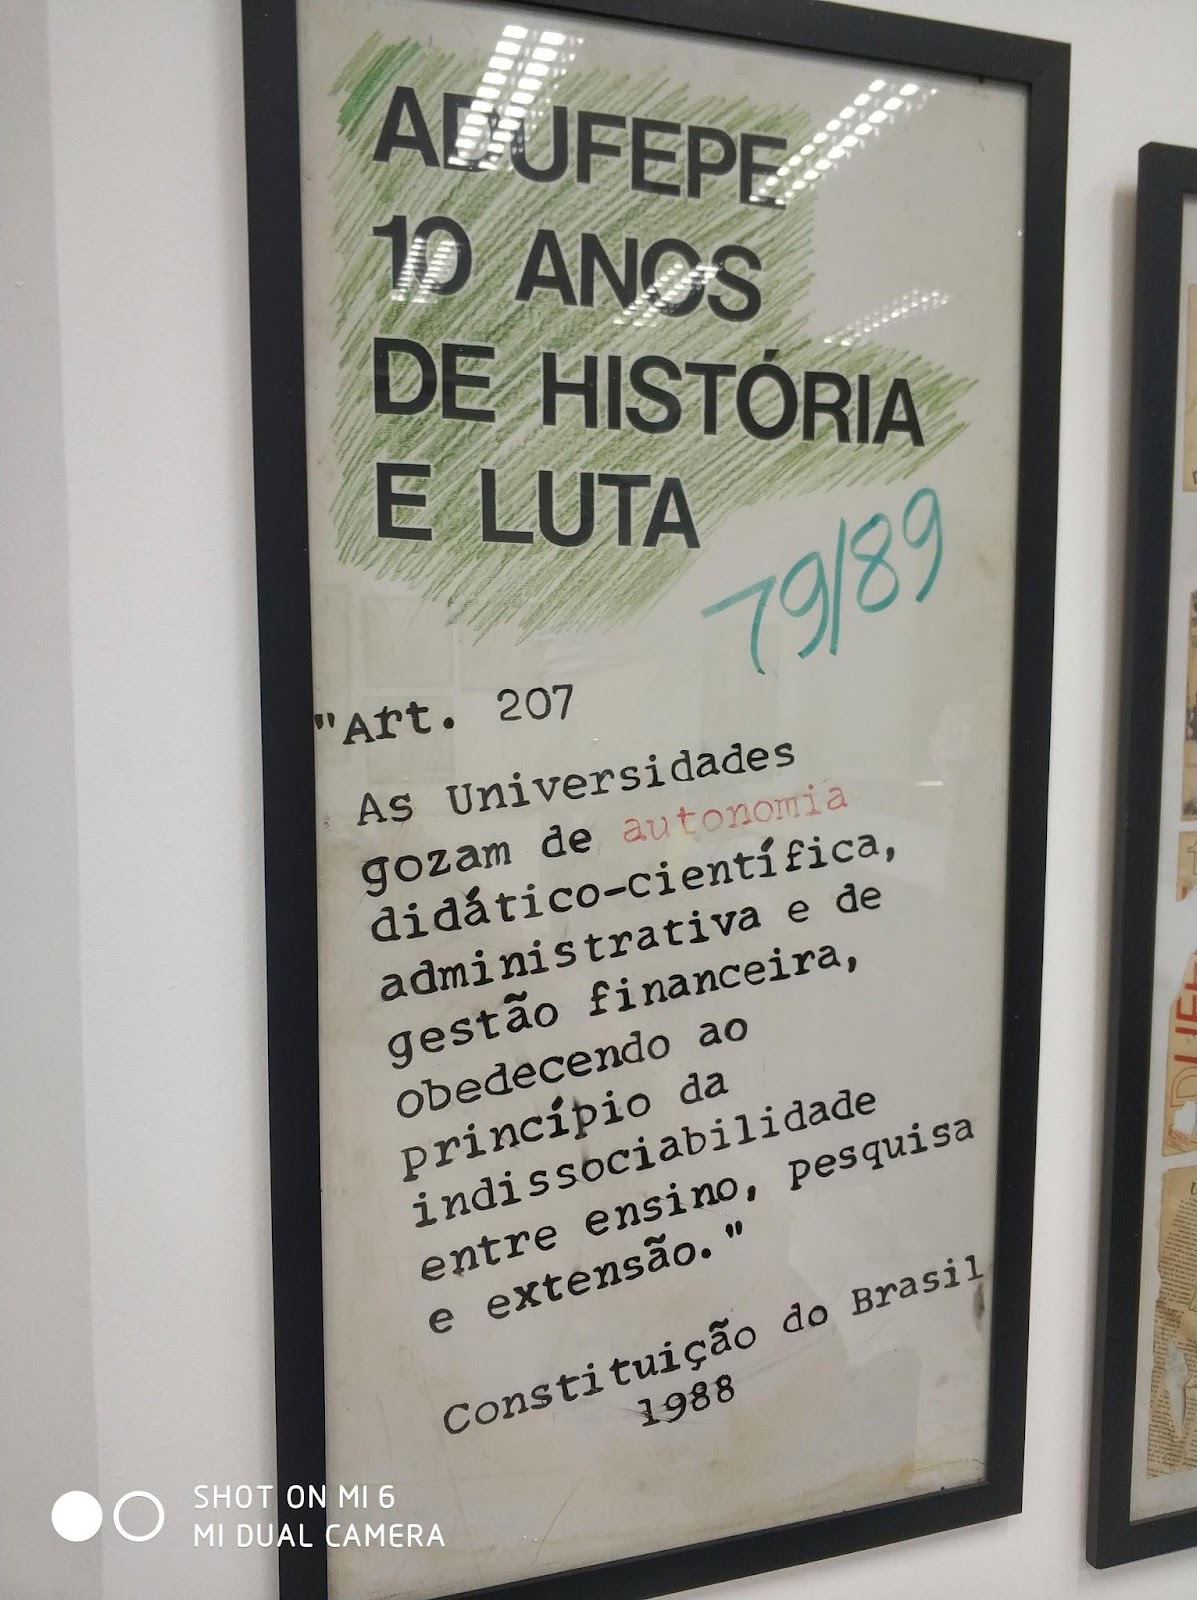 ADUFEPE
10 ANOS
DE HISTÓRIA
E LUTA
79/89
"Art. 207
As Universidades
gozam de autonomia
didático-científica,
administrativa e de
gestão financeira,
obedecendo ao
princípio da
indissociabilidade
entre ensino, pesquisa
e extensão."
Constituição do Brasil
1988
SHOT ON MI 6
MI DUAL CAMERA